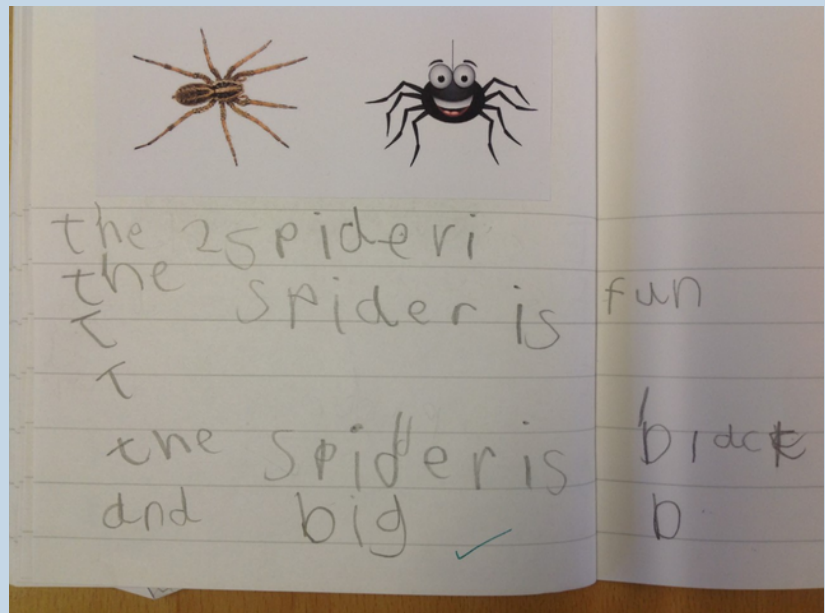 the 2spideri
the spider is fun
T
T
the spider is black
and big b